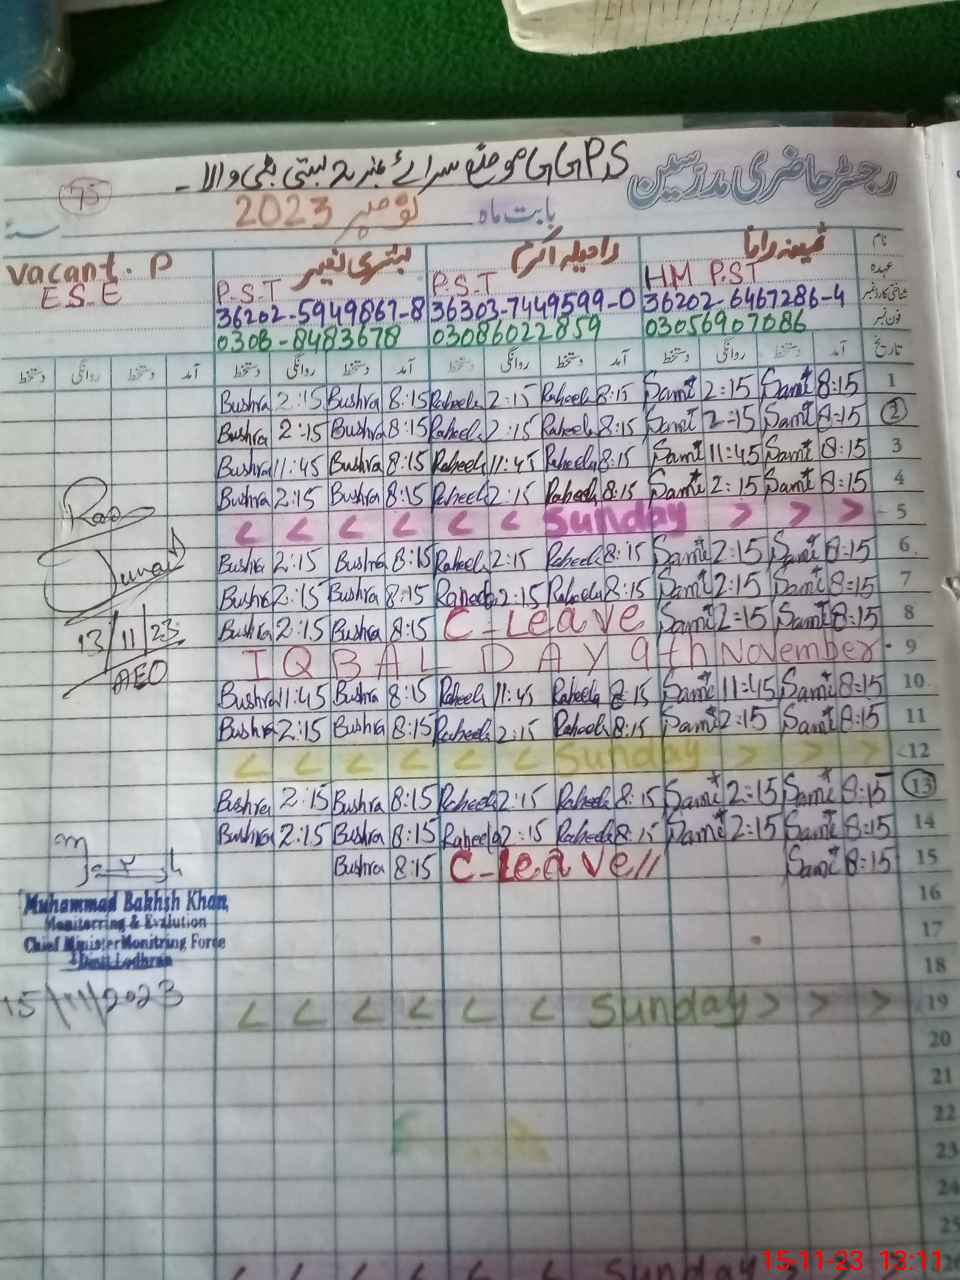 رجسٹر حاضری مدرسین GGPS موضع سرائے نمبر 2 بستی بٹی والا
75
بابت ماہ نومبر 2023 سنہ
نام ثمینہ رانا راحیلہ اکرم بشریٰ نصیر Vacant. P
عہدہ HM P.S.T P.S.T P-S-T E S-E
شناختی کارڈ نمبر 36202-6467286-4 36303-7449599-0 36202-5949867-8
فون نمبر 03056907086 03086022859 0308-8483678
تاریخ آمد دستخط روانگی دستخط آمد دستخط روانگی دستخط آمد دستخط روانگی دستخط آمد دستخط روانگی دستخط
1 8:15 Sami 2:15 Sami 8:15 Raheela 2:15 Raheela 8:15 Bushra 2:15 Bushra
2 8:15 Sami 2:15 Sami 8:15 Raheela 2:15 Raheela 8:15 Bushra 2:15 Bushra
3 8:15 Sami 11:45 Sami 8:15 Raheela 11:45 Raheela 8:15 Bushra 11:45 Bushra
4 8:15 Sami 2:15 Sami 8:15 Raheela 2:15 Raheela 8:15 Bushra 2:15 Bushra
5 < < < < < < Sunday > > >
6 8:15 Sami 2:15 Sami 8:15 Raheela 2:15 Raheela 8:15 Bushra 2:15 Bushra
7 8:15 Sami 2:15 Sami 8:15 Raheela 2:15 Raheela 8:15 Bushra 2:15 Bushra
8 8:15 Sami 2:15 Sami C-Leave 8:15 Bushra 2:15 Bushra
9 IQBAL DAY 9th November
10 8:15 Sami 11:45 Sami 8:15 Raheela 11:45 Raheela 8:15 Bushra 11:45 Bushra
11 8:15 Sami 2:15 Sami 8:15 Raheela 2:15 Raheela 8:15 Bushra 2:15 Bushra
12 < < < < < < Sunday > > >
13 8:15 Sami 2:15 Sami 8:15 Raheela 2:15 Raheela 8:15 Bushra 2:15 Bushra
14 8:15 Sami 2:15 Sami 8:15 Raheela 2:15 Raheela 8:15 Bushra 2:15 Bushra
15 8:15 Sami C-Leave// 8:15 Bushra
16
17
18
19 < < < < < < Sunday > > >
20
21
22
23
24
25
26 < < < < < < Sunday
13/11/23
AEO
Muhammad Bakhsh Khan
Monitorring & Evalution
Chief Minister Monitring Force
Distt Lodhran
15/11/2023
15-11-23 13:11